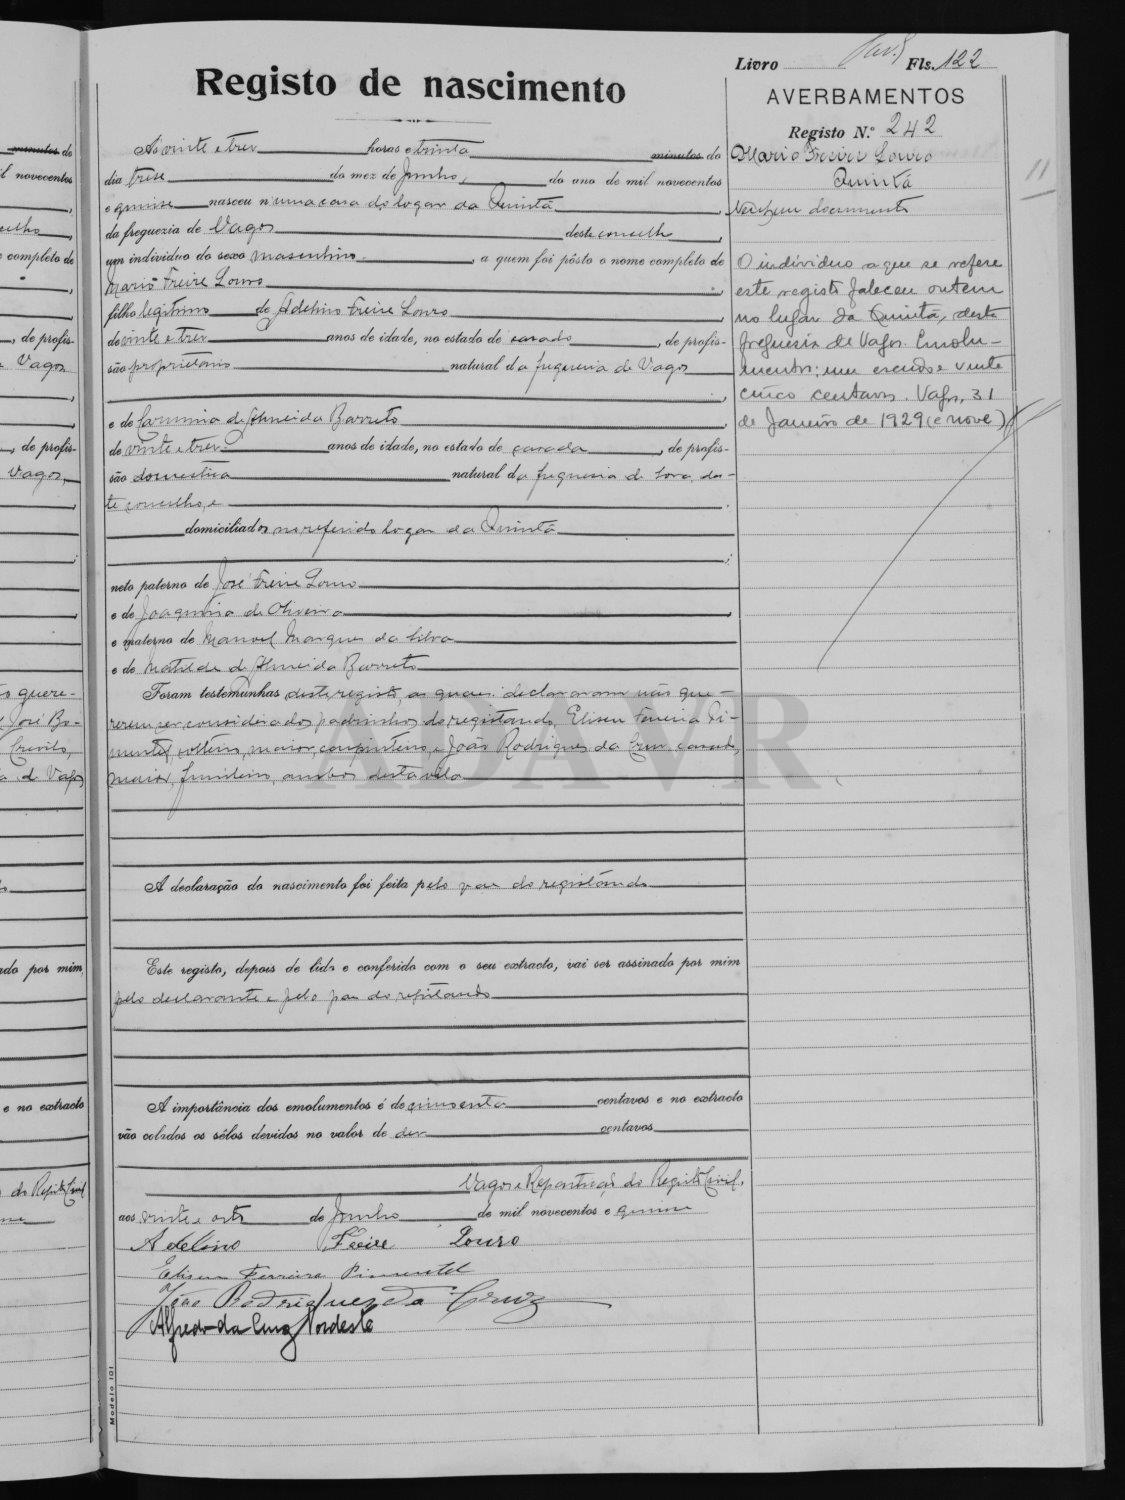 Livro Fls. 122
Registo de nascimento
AVERBAMENTOS
Registo N.º 242
Mario Freire Louro
Quintã
Nenhum documento
O individuo a que se refere
este registo faleceu ontem
no lugar da Quintã, desta
freguesia de Vagos. Emolu-
mentos: um escudo e vinte
cinco centavos. Vagos, 31
de Janeiro de 1929 (e nove)
11
Ás vinte e tres horas e trinta minutos do
dia trese do mez de Junho, do ano de mil novecentos
e quinse nasceu n'uma casa do logar da Quintã,
da freguezia de Vagos deste concelho,
um individuo do sexo masculino, a quem foi pôsto o nome completo de
Mario Freire Louro,
filho legitimo de Adelino Freire Louro,
de vinte e tres anos de idade, no estado de casado, de profis-
são proprietario natural da freguesia de Vagos
e de Carminia de Almeida Barreto,
de vinte e tres anos de idade, no estado de casada, de profis-
são domestica natural da freguesia de Sosa, des-
te concelho, e
domiciliados no referido logar da Quintã
;
neto paterno de José Freire Louro
e de Joaquina de Oliveira,
e materno de Manoel Marques da Silva
e de Matilde d'Almeida Barreto
Foram testemunhas deste registo, as quais declararam não que-
rerem ser considerados padrinhos do registando, Eliseu Ferreira Pi-
mentel, solteiro, maior, carpinteiro, e João Rodrigues da Cruz, casado,
maior, funileiro, ambos desta vila
ADAVR
A declaração do nascimento foi feita pelo pae do registando
Este registo, depois de lido e conferido com o seu extracto, vai ser assinado por mim
pelo declarante e pelo pae do registando
A importância dos emolumentos é de cincoenta centavos e no extracto
vão colados os sêlos devidos no valor de dez centavos
Vagos e Repartição do Registo Civil,
aos vinte e oito de Junho de mil novecentos e quinse
Adelino Freire Louro
Eliseu Ferreira Pimentel
João Rodrigues da Cruz
Alfredo da Cruz Nordeste
Modelo 101